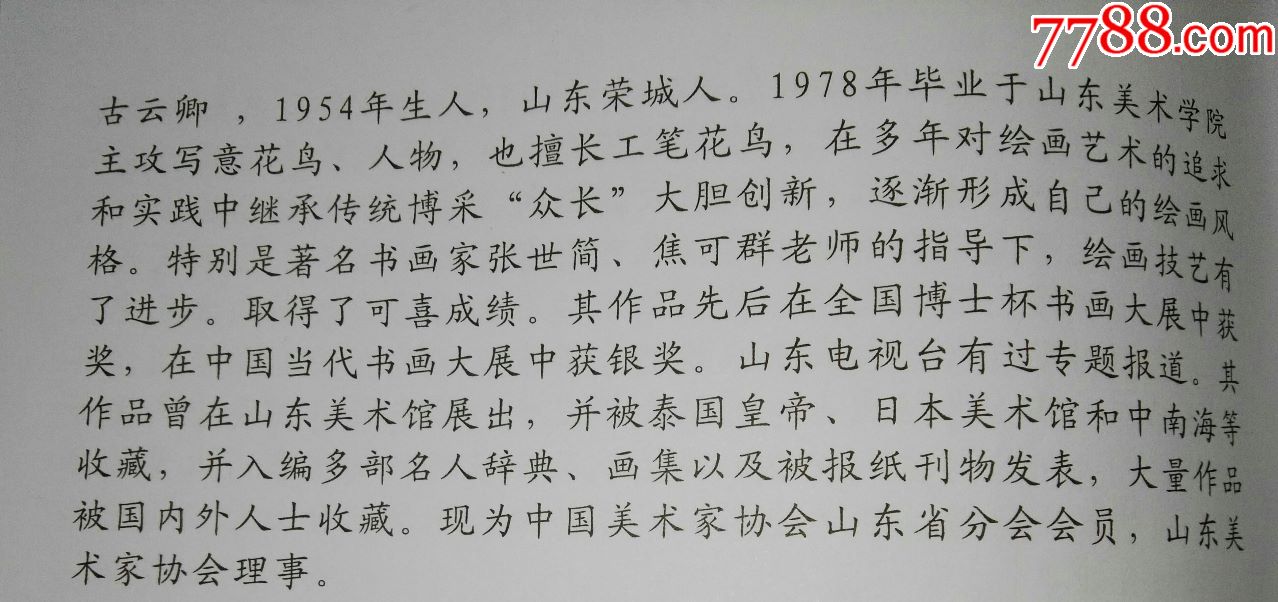 7788.com
古云卿 ，1954年生人，山东荣城人。1978年毕业于山东美术学院
主攻写意花鸟、人物，也擅长工笔花鸟，在多年对绘画艺术的追求
和实践中继承传统博采“众长”大胆创新，逐渐形成自己的绘画风
格。特别是著名书画家张世简、焦可群老师的指导下，绘画技艺有
了进步。取得了可喜成绩。其作品先后在全国博士杯书画大展中获
奖，在中国当代书画大展中获银奖。山东电视台有过专题报道。其
作品曾在山东美术馆展出，并被泰国皇帝、日本美术馆和中南海等
收藏，并入编多部名人辞典、画集以及被报纸刊物发表，大量作品
被国内外人士收藏。现为中国美术家协会山东省分会会员，山东美
术家协会理事。